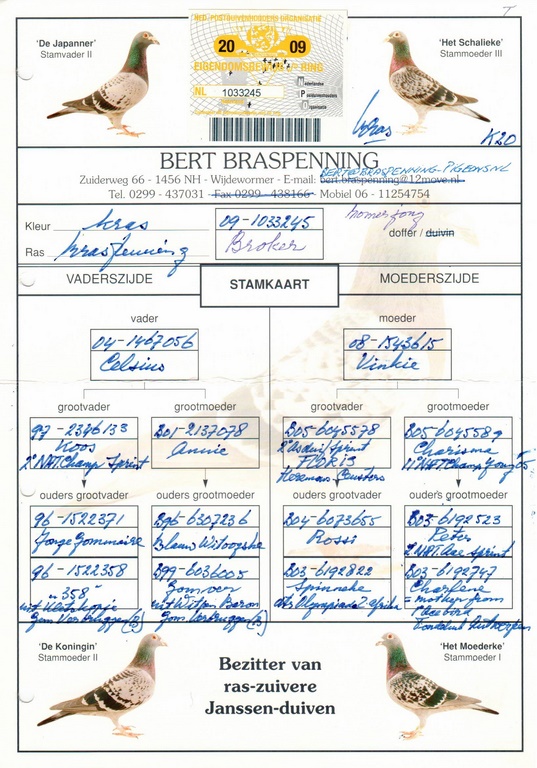 NED. POSTDUIVENHOUDERS ORGANISATIE
20 09
EIGENDOMSBEWIJS
RING
NL 1033245
Nederlandse
Postduivenhouders
Organisatie
'De Japanner'
Stamvader II
'Het Schalieke'
Stammoeder III
kras
K20
BERT BRASPENNING
BERT@BRASPENNING-PIGEONS.NL
Zuiderweg 66 - 1456 NH - Wijdewormer - E-mail: bert.braspenning@12move.nl
Tel. 0299 - 437031 - Fax 0299 - 438166 - Mobiel 06 - 11254754
Kleur kras
09-1033245
Ras Braspenning
Broker
doffer / duivin
VADERSZIJDE
STAMKAART
MOEDERSZIJDE
vader
moeder
04-1467056
Celsius
08-1543615
Vinkie
grootvader
grootmoeder
grootvader
grootmoeder
97-2346133
Koos
2e NAT. Champ Sprint
B01-2137078
Annie
B05-6045578
2e Asduif Sprint
FLORIS
Heremans-Ceusters
B05-6045589
Charisma
ouders grootvader
ouders grootmoeder
ouders grootvader
ouders grootmoeder
96-1522371
Jonge Gommaire
B96-6307236
B04-6073655
Rossi
B03-6192523
Peter
2e NAT. Ace Sprint
96-1522358
"358"
Gom Verbruggen (B)
B99-6036005
Gom Verbruggen (B)
B03-6192822
Spinneke
B03-6192747
Charlene
= mother from
'De Koningin'
Stammoeder II
Bezitter van
ras-zuivere
Janssen-duiven
'Het Moederke'
Stammoeder I